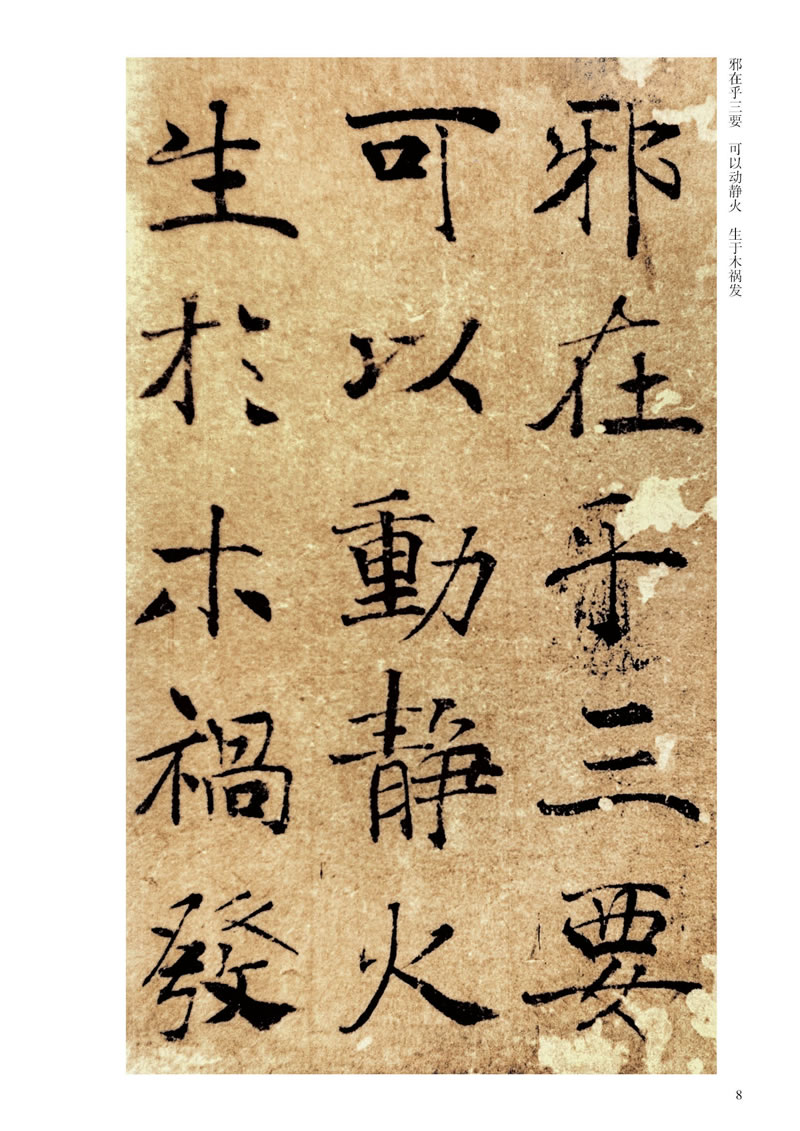 邪在乎三要　可以动静火　生于木祸发
邪在乎三要
可以動静火
生於木禍發
8